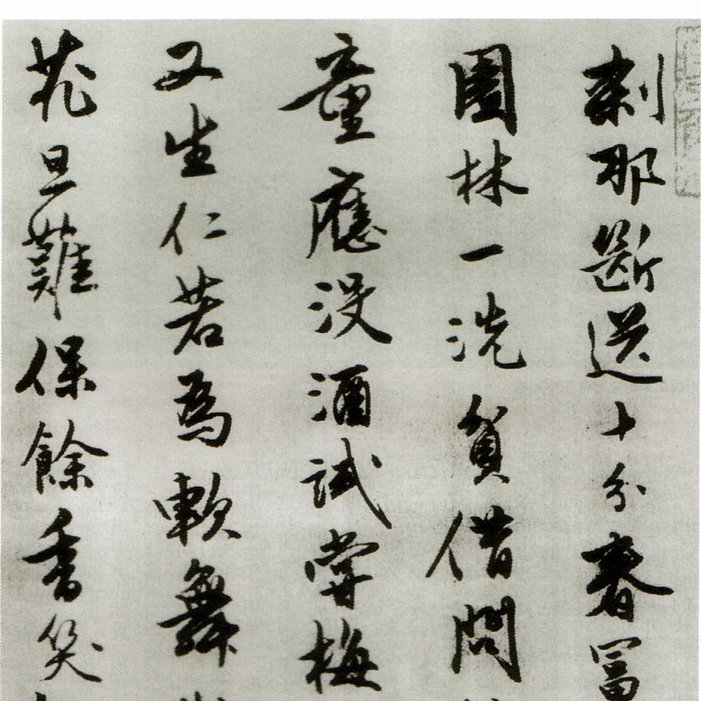 刹那斷送十分春富
園林一洗貧借問
童應沒酒試嘗梅
又生仁若為軟舞
花旦難保餘香笑